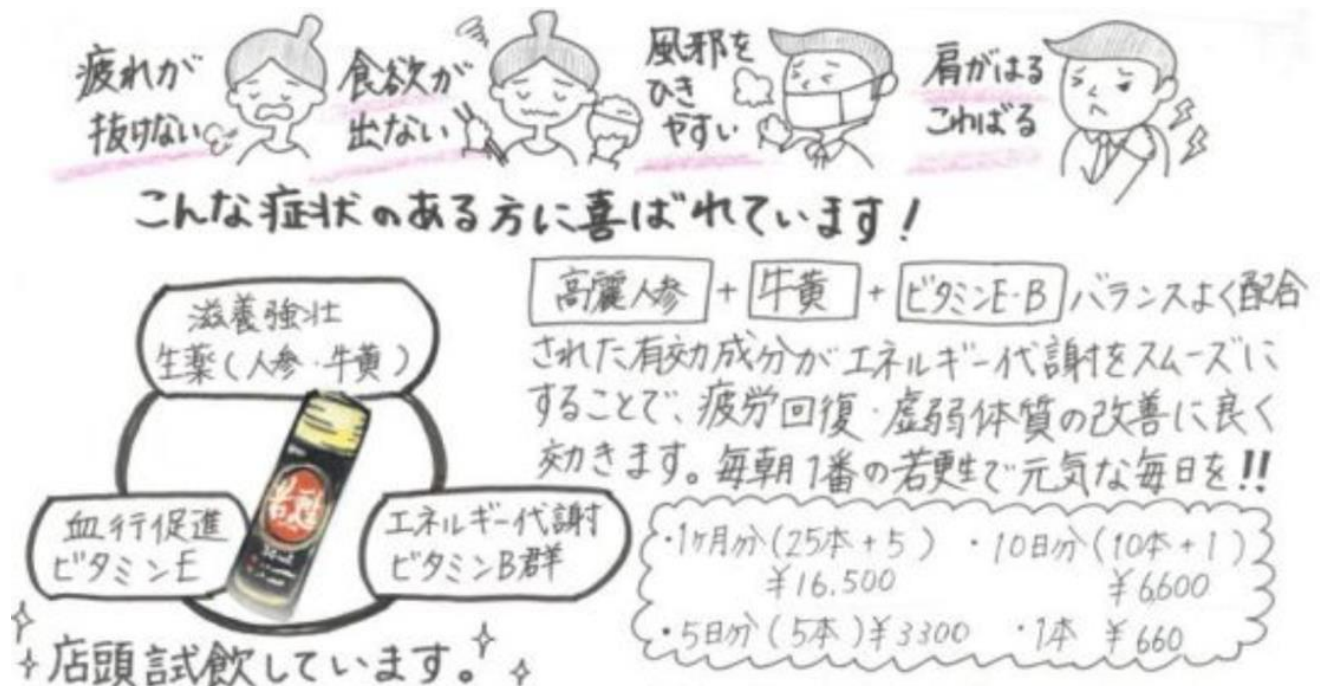 疲れが
抜けない
食欲が
出ない
風邪を
ひき
やすい
肩がはる
こわばる
こんな症状のある方に喜ばれています！
滋養強壮
生薬（人参・牛黄）
血行促進
ビタミンE
エネルギー代謝
ビタミンB群
若甦
店頭試飲しています。
高麗人参 + 牛黄 + ビタミンE・B バランスよく配合
された有効成分がエネルギー代謝をスムーズに
することで、疲労回復・虚弱体質の改善に良く
効きます。毎朝1番の若甦で元気な毎日を!!
・1ヶ月分(25本+5) ・10日分(10本+1)
¥16.500 ¥6,600
・5日分(5本)¥3300 ・1本 ¥660